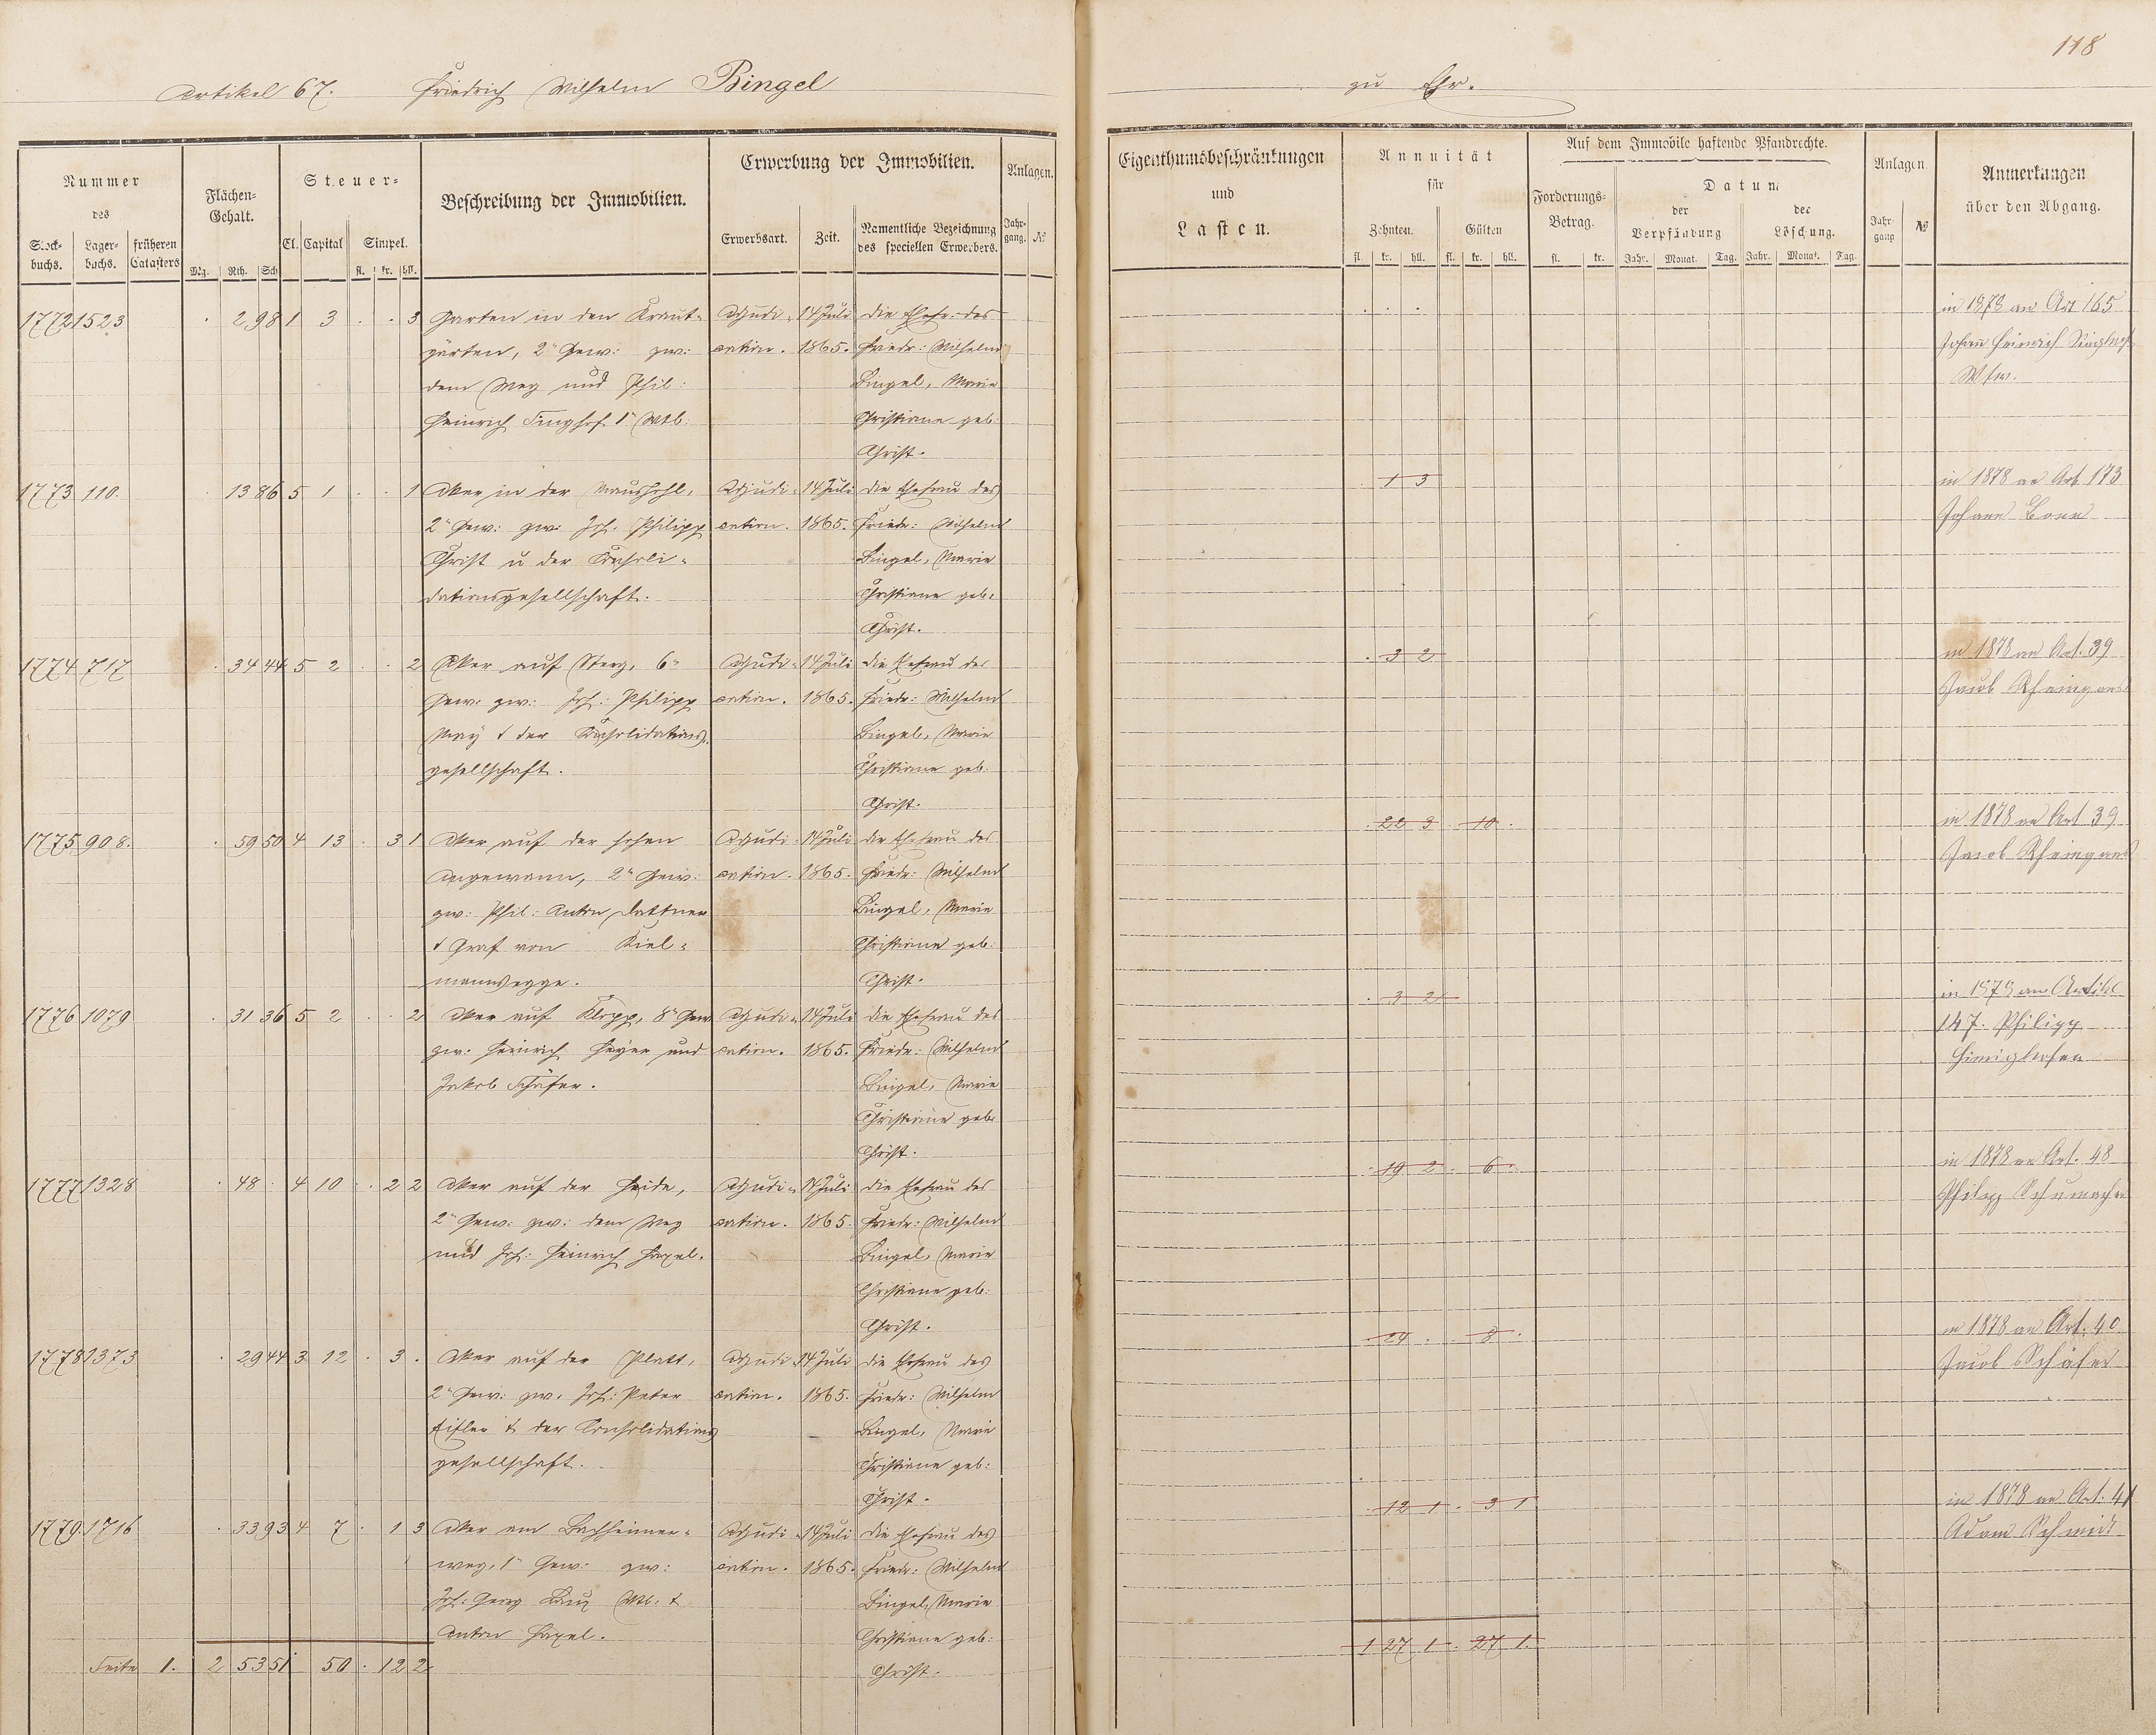 118
Artikel 67. Friedrich Wilhelm Bingel zu Ehr.
Nummer des
Stock-buchs. Lager-buchs. früheren Catasters
Flächen-Gehalt.
Mg. Rth. Sch.
Steuer-
Cl. Capital Simpel.
fl. kr. hll.
Beschreibung der Immobilien.
Erwerbung der Immobilien.
Erwerbsart. Zeit. Namentliche Bezeichnung des speciellen Erwerbers.
Anlagen.
Jahr-gang. №
Eigenthumsbeschränkungen und Lasten.
Annuität für
Zehnten. Gülten
fl. kr. hll. fl. kr. hll.
Auf dem Immobile haftende Pfandrechte.
Forderungs-Betrag.
fl. kr.
Datum
der Verpfändung der Löschung.
Jahr. Monat. Tag. Jahr. Monat. Tag.
Anlagen
Jahr-gang №
Anmerkungen über den Abgang.
1772 1523 . 2 98 1 3 . . 3 Garten in den Kraut- Adjudi- 14 Juli die Ehefr. des
gärten, 2r Gew: zw: cation. 1865. Friedr: Wilhelm
dem Weg und Phil: Bingel, Marie
Heinrich 1r Wtb: Christiane geb:
Christ.
in 1878 an Art 165
Johann Heinrich
Wtw.
1773 110. . 13 86 5 1 . . 1 Acker in der Maushohl, Adjudi- 14 Juli die Ehefrau des
2r Gew: zw: Joh. Philipp cation. 1865. Friedr: Wilhelm
Christ u der Consoli- Bingel, Marie
dationsgesellschaft. Christiane geb.
Christ.
. 1 3
in 1878 an Art. 173
Johann Bonn
1774 717 . 34 44 5 2 . . 2 Acker auf Steeg, 6r Adjudi- 14 Juli die Ehefrau des
Gew: zw: Joh: Philipp cation. 1865. Friedr: Wilhelm
May & der Consolidations- Bingel, Marie
gesellschaft. Christiane geb:
Christ.
. 3 2
in 1878 an Art. 39
Jacob Rheingans
1775 908. . 59 50 4 13 . 3 1 Acker auf der hohen Adjudi- 14 Juli die Ehefrau des
Angewann, 2r Gew: cation. 1865. Friedr: Wilhelm
zw: Phil: Anton Dattner Bingel, Marie
& Graf von Kiel- Christiane geb:
mannsegge. Christ.
. 22 3 . 10 .
in 1878 an Art 39
Jacob Rheingans
1776 1079 . 31 36 5 2 . . 2 Acker auf Klopp, 8r Gew Adjudi- 14 Juli die Ehefrau des
zw: Heinrich Heyer und cation. 1865. Friedr: Wilhelm
Jakob Schäfer. Bingel, Marie
Christiane geb.
Christ.
. 3 2
in 1878 an Artikel
147. Philipp
1777 1328 . 48 . 4 10 . 2 2 Acker auf der Heide, Adjudi- 14 Juli die Ehefrau des
2r Gew: zw: dem Weg cation. 1865. Friedr: Wilhelm
und Joh: Heinrich Hegel. Bingel, Marie
Christiane geb:
Christ.
. 19 2 . 6 .
in 1878 an Art. 48
Philipp Schumacher
1778 1373 . 29 44 3 12 . 3 . Acker auf der Platt, Adjudi- 14 Juli die Ehefrau des
2r Gew: zw. Joh: Peter cation. 1865. Friedr: Wilhelm
& der Consolidations Bingel, Marie
gesellschaft. Christiane geb:
Christ.
. 24 . . 8 .
in 1878 an Art. 40
Jacob Schäfer
1779 1716 . 33 93 4 7 . 1 3 Acker am Bachheimer- Adjudi- 14 Juli die Ehefrau des
weg, 1r Gew: zw: cation. 1865. Friedr: Wilhelm
Joh: Georg Wtb. & Bingel, Marie
Anton Hegel. Christiane geb:
Christ.
. 12 1 . 3 1
in 1878 an Art. 41
Adam Schmidt
Seite 1. 2 53 51 50 . 12 2
1 27 1 . 27 1.